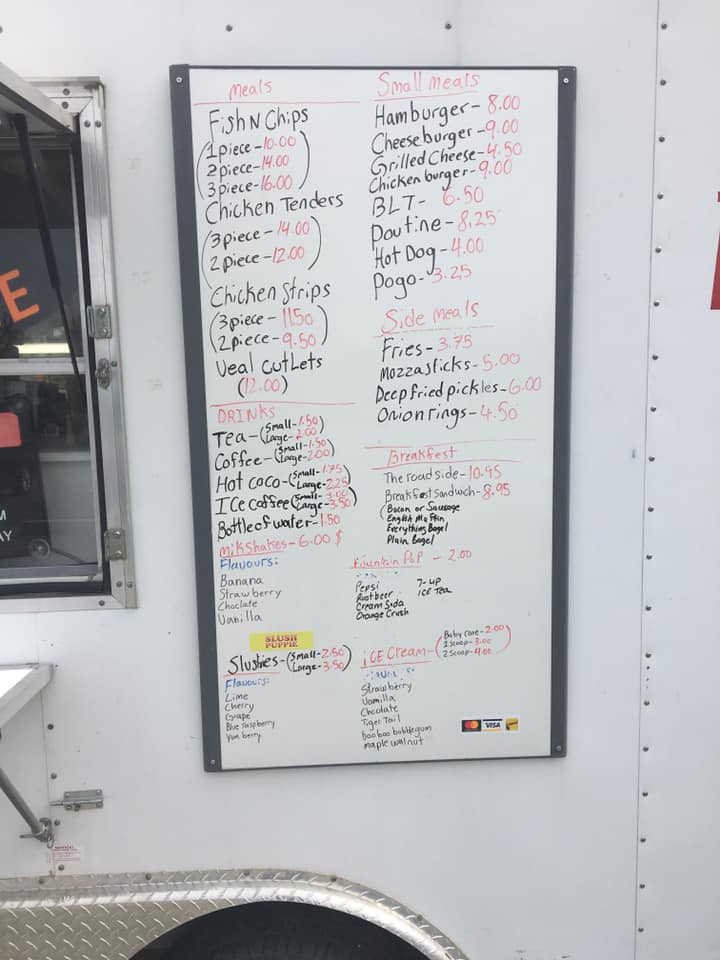 Meals
Fish N Chips
1 piece - 10.00
2 piece - 14.00
3 piece - 16.00
Chicken Tenders
3 piece - 14.00
2 piece - 12.00
Chicken Strips
3 piece - 11.50
2 piece - 9.50
Veal Cutlets
(12.00)
DRINKS
Tea - (Small - 1.50
Large - 2.00)
Coffee - (Small - 1.50
Large - 2.00)
Hot Coco - (Small - 1.75
Large - 2.25)
ICe Coffee (Small - 3.00
Large - 3.50)
Bottle of water - 1.50
Milkshakes - 6.00 $
Flavours:
Banana
Strawberry
Choclate
Vanilla
SLUSH
PUPPiE
Slushies - (Small - 2.50
Large - 3.50)
Flavours:
Lime
Cherry
Grape
Blue raspberry
Yum berry
Small Meals
Hamburger - 8.00
Cheeseburger - 9.00
Grilled Cheese - 4.50
Chicken burger - 9.00
BLT - 6.50
Poutine - 8.25
Hot Dog - 4.00
Pogo - 3.25
Side Meals
Fries - 3.75
Mozzasticks - 5.00
Deep fried pickles - 6.00
Onion rings - 4.50
Breakfest
The roadside - 10.95
Breakfast Sandwich - 8.95
(Bacon or Sausage
English Muffin
Everything Bagel
Plain Bagel
Fountain PoP - 2.00
Pepsi
Rootbeer
Cream Soda
Orange Crush
7-up
ICE Tea
ICE Cream - (Baby cone - 2.00
1 scoop - 3.00
2 scoop - 4.00)
Strawberry
Vanilla
Chocolate
Tiger Tail
boo boo bubblegum
maple walnut
VISA
E
M
AY